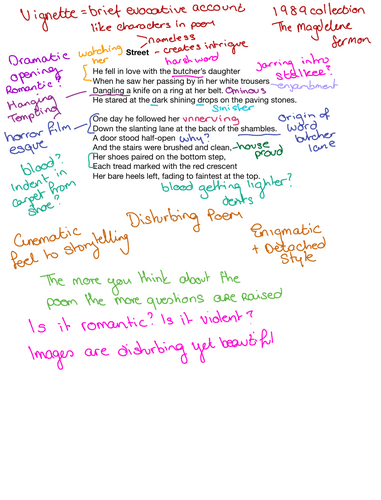 Vignette = brief evocative account
like characters in poem
1989 collection
The Magdelene
Sermon
nameless
Street - creates intrigue
harsh word
Dramatic
opening?
Romantic?
Hanging
Tempting
watching
her
jarring intro
stalker?
enjambment
He fell in love with the butcher's daughter
When he saw her passing by in her white trousers
Dangling a knife on a ring at her belt. Ominous
He stared at the dark shining drops on the paving stones.
Sinister
One day he followed her unnerving
Down the slanting lane at the back of the shambles.
A door stood half-open why?
And the stairs were brushed and clean, - house
proud
Her shoes paired on the bottom step,
Each tread marked with the red crescent
Her bare heels left, fading to faintest at the top.
horror film
esque
blood?
Indent in
carpet from
shoe?
origin of
word
butcher
lane
blood getting lighter?
dents
Cinematic
feel to storytelling
Disturbing Poem
Enigmatic
+ Detached
Style
The more you think about the
poem the more questions are raised
Is it romantic? Is it violent?
Images are disturbing yet beautiful